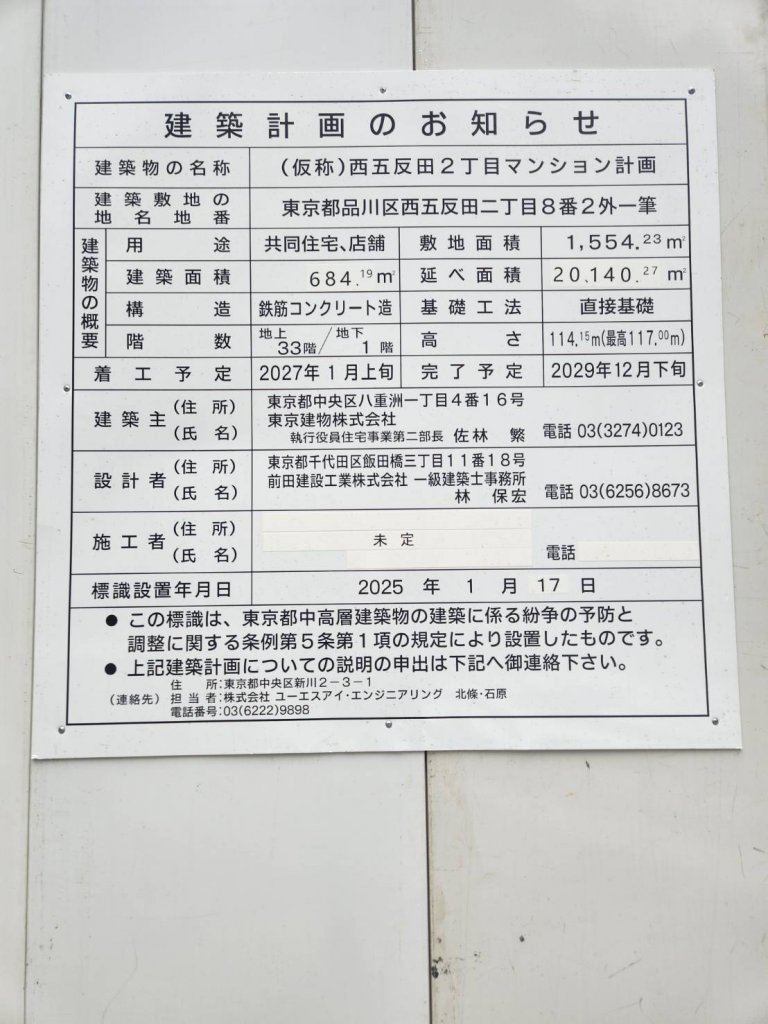 建築計画のお知らせ
建築物の名称 (仮称)西五反田2丁目マンション計画
建築敷地の地名地番 東京都品川区西五反田二丁目8番2外一筆
建築物の概要
用途 共同住宅、店舗 敷地面積 1,554.23㎡
建築面積 684.19㎡ 延べ面積 20,140.27㎡
構造 鉄筋コンクリート造 基礎工法 直接基礎
階数 地上33階/地下1階 高さ 114.15m(最高117.00m)
着工予定 2027年1月上旬 完了予定 2029年12月下旬
建築主 (住所) 東京都中央区八重洲一丁目4番16号
(氏名) 東京建物株式会社
執行役員住宅事業第二部長 佐林 繁 電話 03(3274)0123
設計者 (住所) 東京都千代田区飯田橋三丁目11番18号
(氏名) 前田建設工業株式会社 一級建築士事務所
林 保宏 電話 03(6256)8673
施工者 (住所)
(氏名) 未定 電話
標識設置年月日 2025年1月17日
● この標識は、東京都中高層建築物の建築に係る紛争の予防と
調整に関する条例第5条第1項の規定により設置したものです。
● 上記建築計画についての説明の申出は下記へ御連絡下さい。
住所:東京都中央区新川2-3-1
(連絡先) 担当者:株式会社 ユーエスアイ・エンジニアリング 北條・石原
電話番号:03(6222)9898